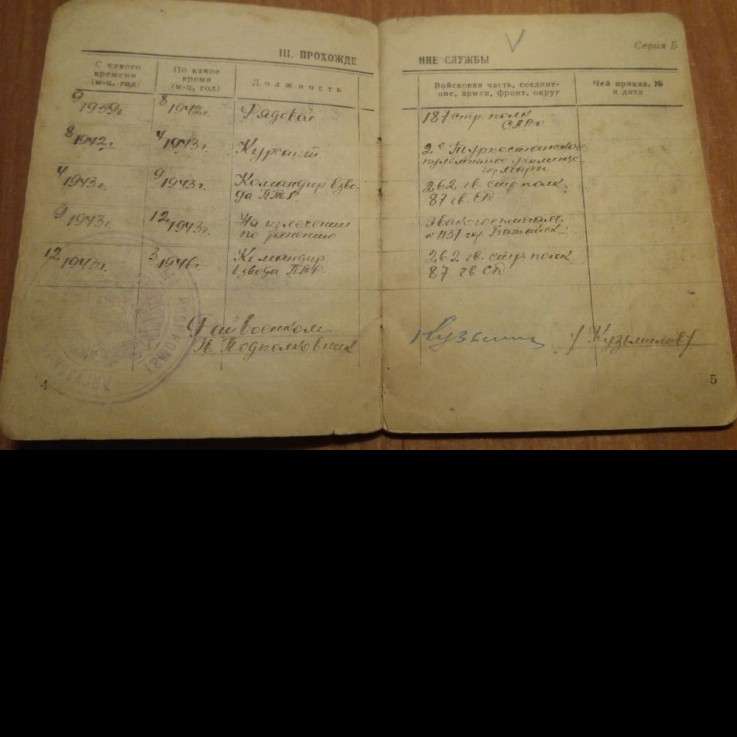 III. ПРОХОЖДЕ
С какого времени (м-ц, год)
По какое время (м-ц, год)
Должность
9 1939г. 8 1942г. Рядовой
8 1942г. 4 1943г. Курсант
4 1943г. 9 1943г. Командир взво-
да ПТР
9 1943г. 12 1943г. На излечении
по ранению
12 1943г. 3 1946г. Командир
взвода ПТР
Райвоенком
П Подполковник
4
V
Серия Б
НИЕ СЛУЖБЫ
Войсковая часть, соедине-
ние, армия, фронт, округ
Чей приказ, №
и дата
187 стр полк
2е Туркестанское
пулеметное училище
262 гв. стр полк
87 гв. СД
Эвакогоспиталь
262 гв. стр полк
87 гв СД
5